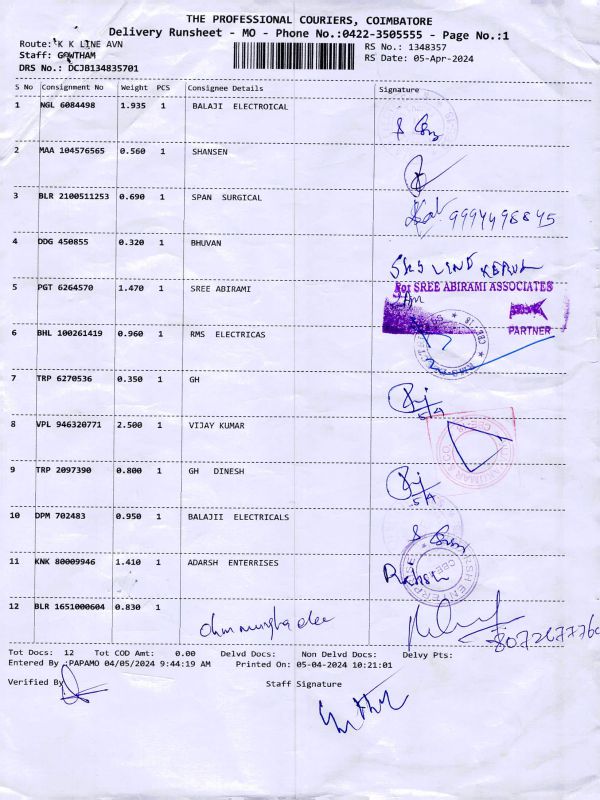 THE PROFESSIONAL COURIERS, COIMBATORE
Delivery Runsheet - MO - Phone No.:0422-3505555 - Page No.:1
Route: K K LINE AVN
RS No.: 1348357
Staff: GOWTHAM
RS Date: 05-Apr-2024
DRS No.: DCJB134835701
S No Consignment No Weight PCS Consignee Details Signature
1 NGL 6084498 1.935 1 BALAJI ELECTROICAL
2 MAA 104576565 0.560 1 SHANSEN
3 BLR 2100511253 0.690 1 SPAN SURGICAL
9994498845
4 DDG 450855 0.320 1 BHUVAN
5 PGT 6264570 1.470 1 SREE ABIRAMI
For SREE ABIRAMI ASSOCIATES
PARTNER
6 BHL 100261419 0.960 1 RMS ELECTRICAS
7 TRP 6270536 0.350 1 GH
5/4
8 VPL 946320771 2.500 1 VIJAY KUMAR
9 TRP 2097390 0.800 1 GH DINESH
5/4
10 DPM 702483 0.950 1 BALAJII ELECTRICALS
11 KNK 80009946 1.410 1 ADARSH ENTERRISES
12 BLR 1651000604 0.830 1
Tot Docs: 12 Tot COD Amt: 0.00 Delvd Docs: Non Delvd Docs: Delvy Pts:
Entered By :PAPAMO 04/05/2024 9:44:19 AM Printed On: 05-04-2024 10:21:01
Verified By
Staff Signature